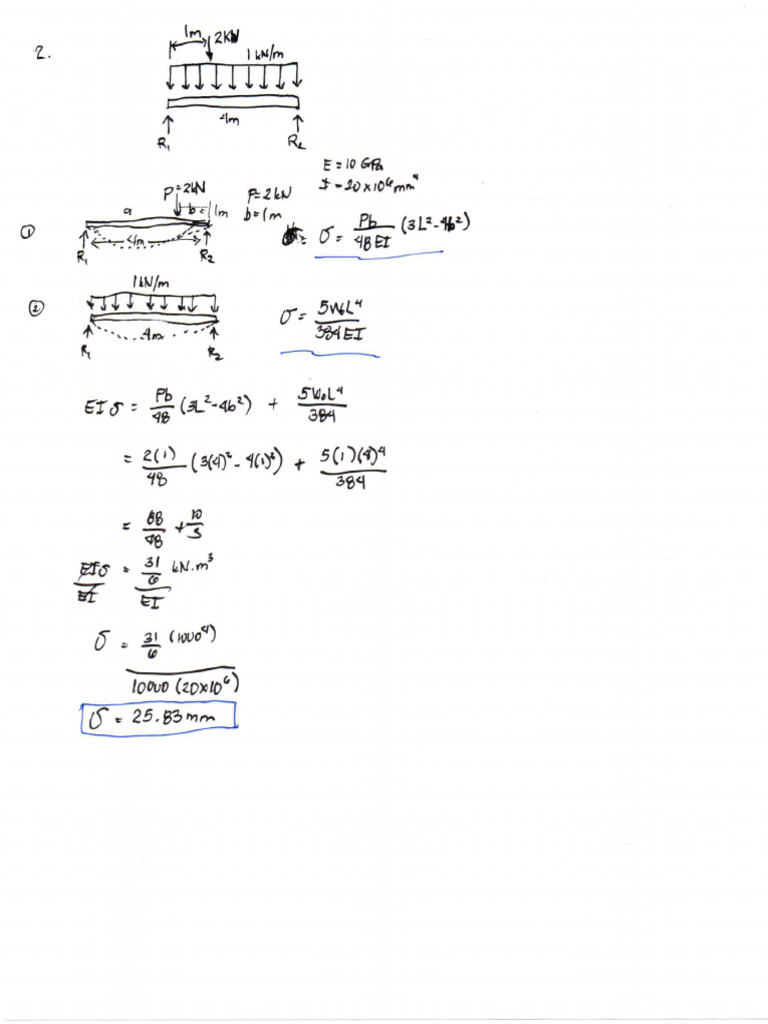 2.
1m 2KN
1 kN/m
4m
R₁ R₂
E = 10 GPa
I = 20×10⁶ mm⁴
P=2kN P=2kN
a b = 1m b=1m
① 4m
R₁ R₂
σ = Pb/48EI (3L²-4b²)
1kN/m
② 4m
R₁ R₂
σ = 5W₀L⁴/384EI
EIσ = Pb/48 (3L²-4b²) + 5W₀L⁴/384
= 2(1)/48 (3(4)²-4(1)²) + 5(1)(4)⁴/384
= 88/48 + 10/3
EIσ/EI = 31/6 kN.m³/EI
σ = 31/6 (1000⁴)/10000(20×10⁶)
σ = 25.83mm